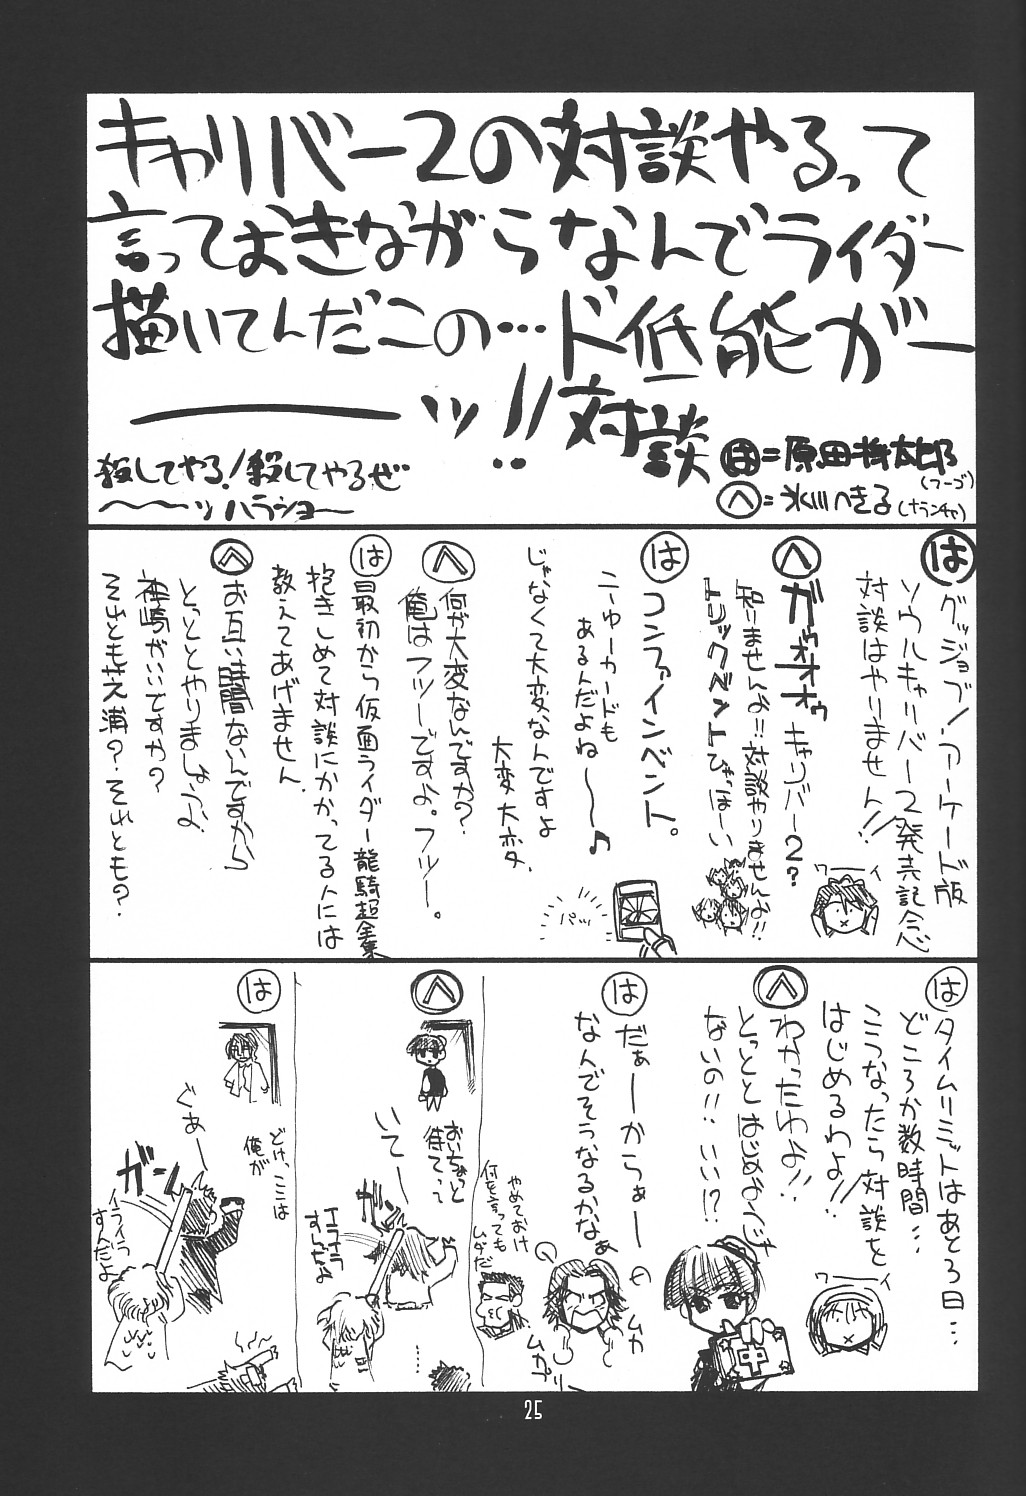 キャリバー2の対談やるって
言っておきながらなんでライダー
描いてんだこの…ド低能がー
――――ッ!!対談
殺してやる!殺してやるぜ
〜〜〜ッハラショー
は=原田将太郎
(フーゴ)
へ=氷川へきる
(ナランチャ)
は
グッジョブ!アーケード版
ソウルキャリバー2発売記念
対談はやりません!!
ワーイ
へ
ガゥオオオゥ
キャリバー2?
知りませんよ!!対談やりませんよ!!
トリックベントひゃっほーい
は
コンファインベント。
にゅーカードも
あるんだよね〜〜♪
じゃなくて大変なんですよ
大変大変
パッ
へ
何が大変なんですか?
俺はフツーですよ。フツー。
は
最初から仮面ライダー龍騎超全集
抱きしめて対談にかかってる人には
教えてあげません
へ
お互い時間ないんですから
とっととやりましょうよ
神崎がいいですか?
それとも芝浦?それとも?
は
タイムリミットはあと3日…
どころか数時間…
こうなったら対談を
はじめるわよ!!
ワーイ
へ
わかったわよ!!
とっととはじめようじゃ
ないの!!いい!?
中
は
だぁーからぁー
なんでそうなるかなぁ
ムカ
ムカ
やめておけ
何を言っても
ムダだ
へ
おいちょっと
待てって
いてー
ガッ
イライラ
すんだよ
……
は
どけ、ここは
俺が
ぐぁー
ガンッ
イライラ
すんだよ
25